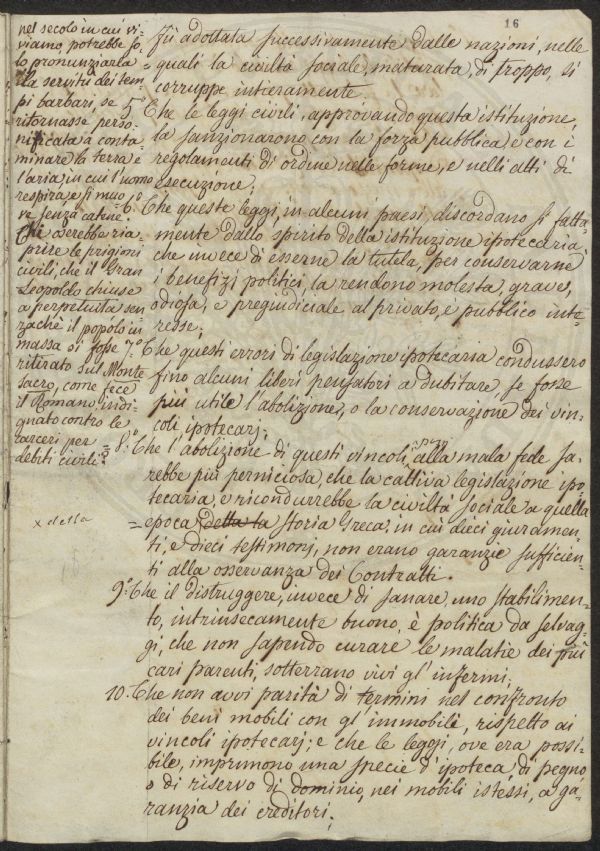 16
nel secolo in cui vi-
viamo, potrebbe so-
lo pronunziarla
la servitù dei tem-
pi barbari, se
ritornasse perso-
nificata a conta-
minare la terra e
l'aria, in cui l'uomo
respira, e si muo-
ve senza catene.
Chi oserebbe ria-
prire le prigioni
civili, che il Gran
Leopoldo chiuse
a perpetuità sen-
zachè il popolo in
massa si fosse
ritirato sul Monte
Sacro, come fece
il Romano indi-
gnato contro le
carceri per
debiti civili?
x della
fù adottata successivamente dalle nazioni, nelle
quali la civiltà sociale, maturata, di troppo, si
corruppe intieramente.
5.° Che le leggi civili, approvando questa istituzione,
la sanzionarono con la forza pubblica e con i
regolamenti di ordine nelle forme, e nelli atti di
esecuzione;
6.° Che queste leggi, in alcuni paesi, discordano sì fatta-
mente dallo spirito della istituzione ipotecaria,
che invece di esserne la tutela, per conservarne
i benefizi politici, la rendono molesta, grave,
odiosa, e pregiudiciale al privato, e pubblico inte-
resse;
7.° Che questi errori di legislazione ipotecaria condussero
fino alcuni liberi pensatori a dubitare, se fosse
più utile l'abolizione, o la conservazione dei vin-
coli ipotecarj;
8.° Che l'abolizione di questi vincoli, alla mala fede sa-
rebbe più perniciosa, che la cattiva legislazione ipo-
tecaria, e ricondurrebbe la civiltà sociale a quella
epoca della la storia Greca, in cui dieci giuramen-
ti, e dieci testimonj, non erano garanzie sufficien-
ti alla osservanza dei Contratti.
9.° Che il distruggere, invece di sanare, uno stabilimen-
to, intrinsecamente buono, è politica da selvag-
gi, che non sapendo curare le malatie dei più
cari parenti, sotterrano vivi gl'infermi;
10. Che non avvi parità di termini nel confronto
dei beni mobili con gl'immobili, rispetto ai
vincoli ipotecarj; e che le leggi, ove era possi-
bile, imprimono una specie d'ipoteca di pegno
o di riservo di dominio, nei mobili istessi, a ga-
ranzia dei creditori;